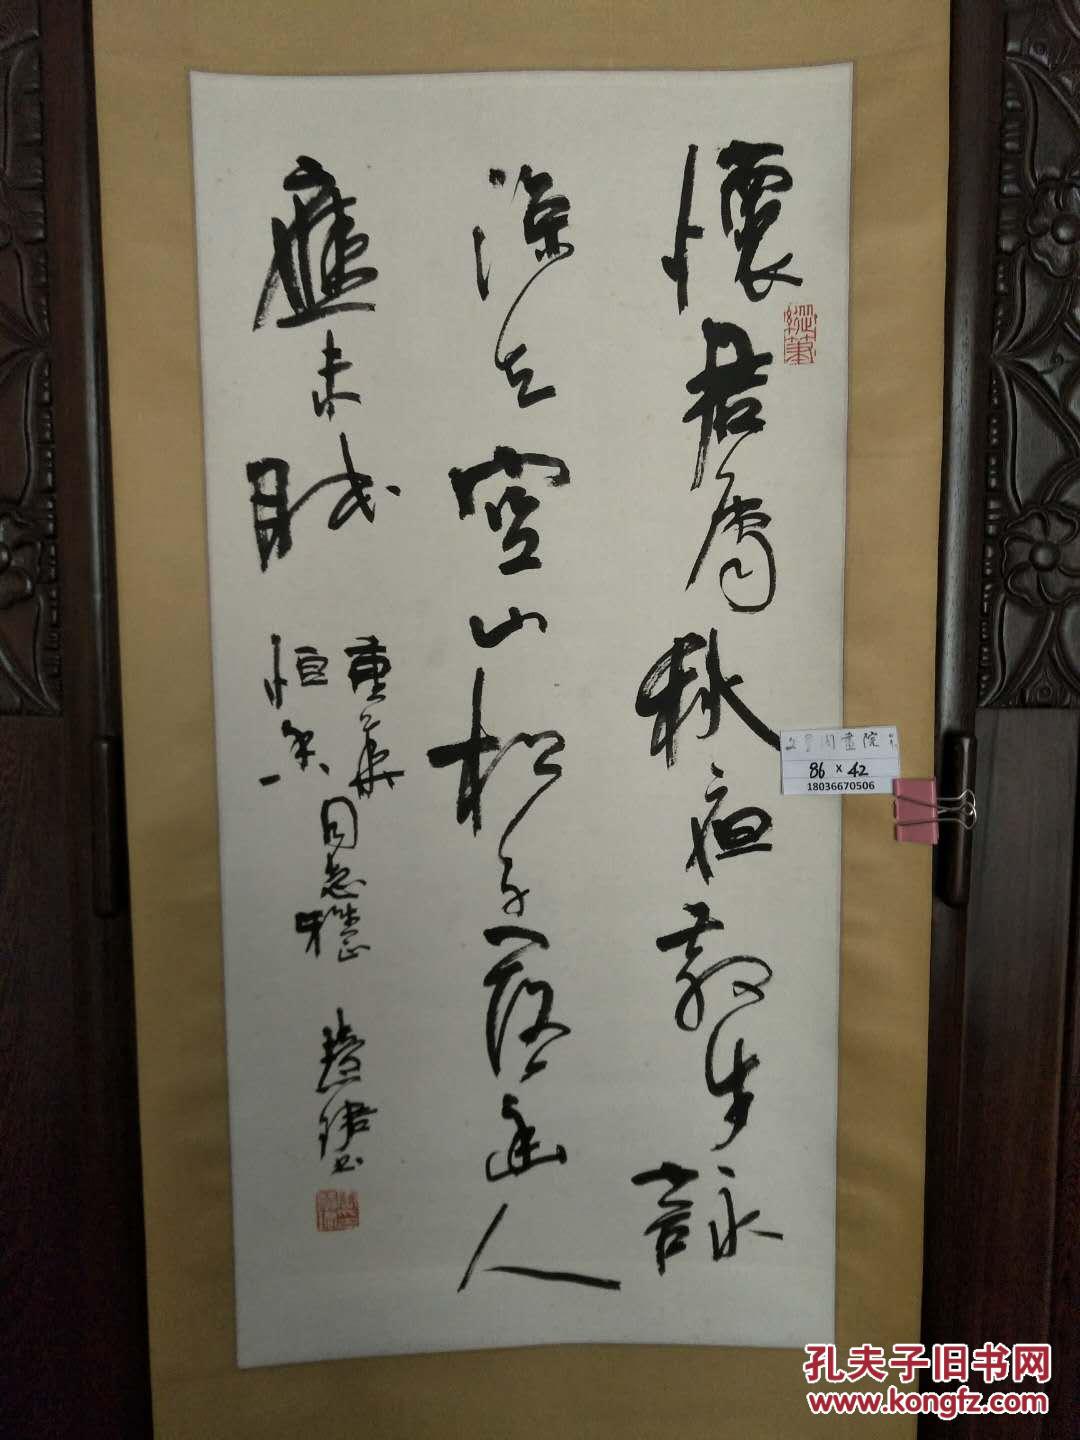 懷君属秋夜散步詠
涼天空山松子落幽人
應未眠
重華
恒
同志雅正 慧珺书
画院
86 x 42
18036670506
孔夫子旧书网
www.kongfz.com